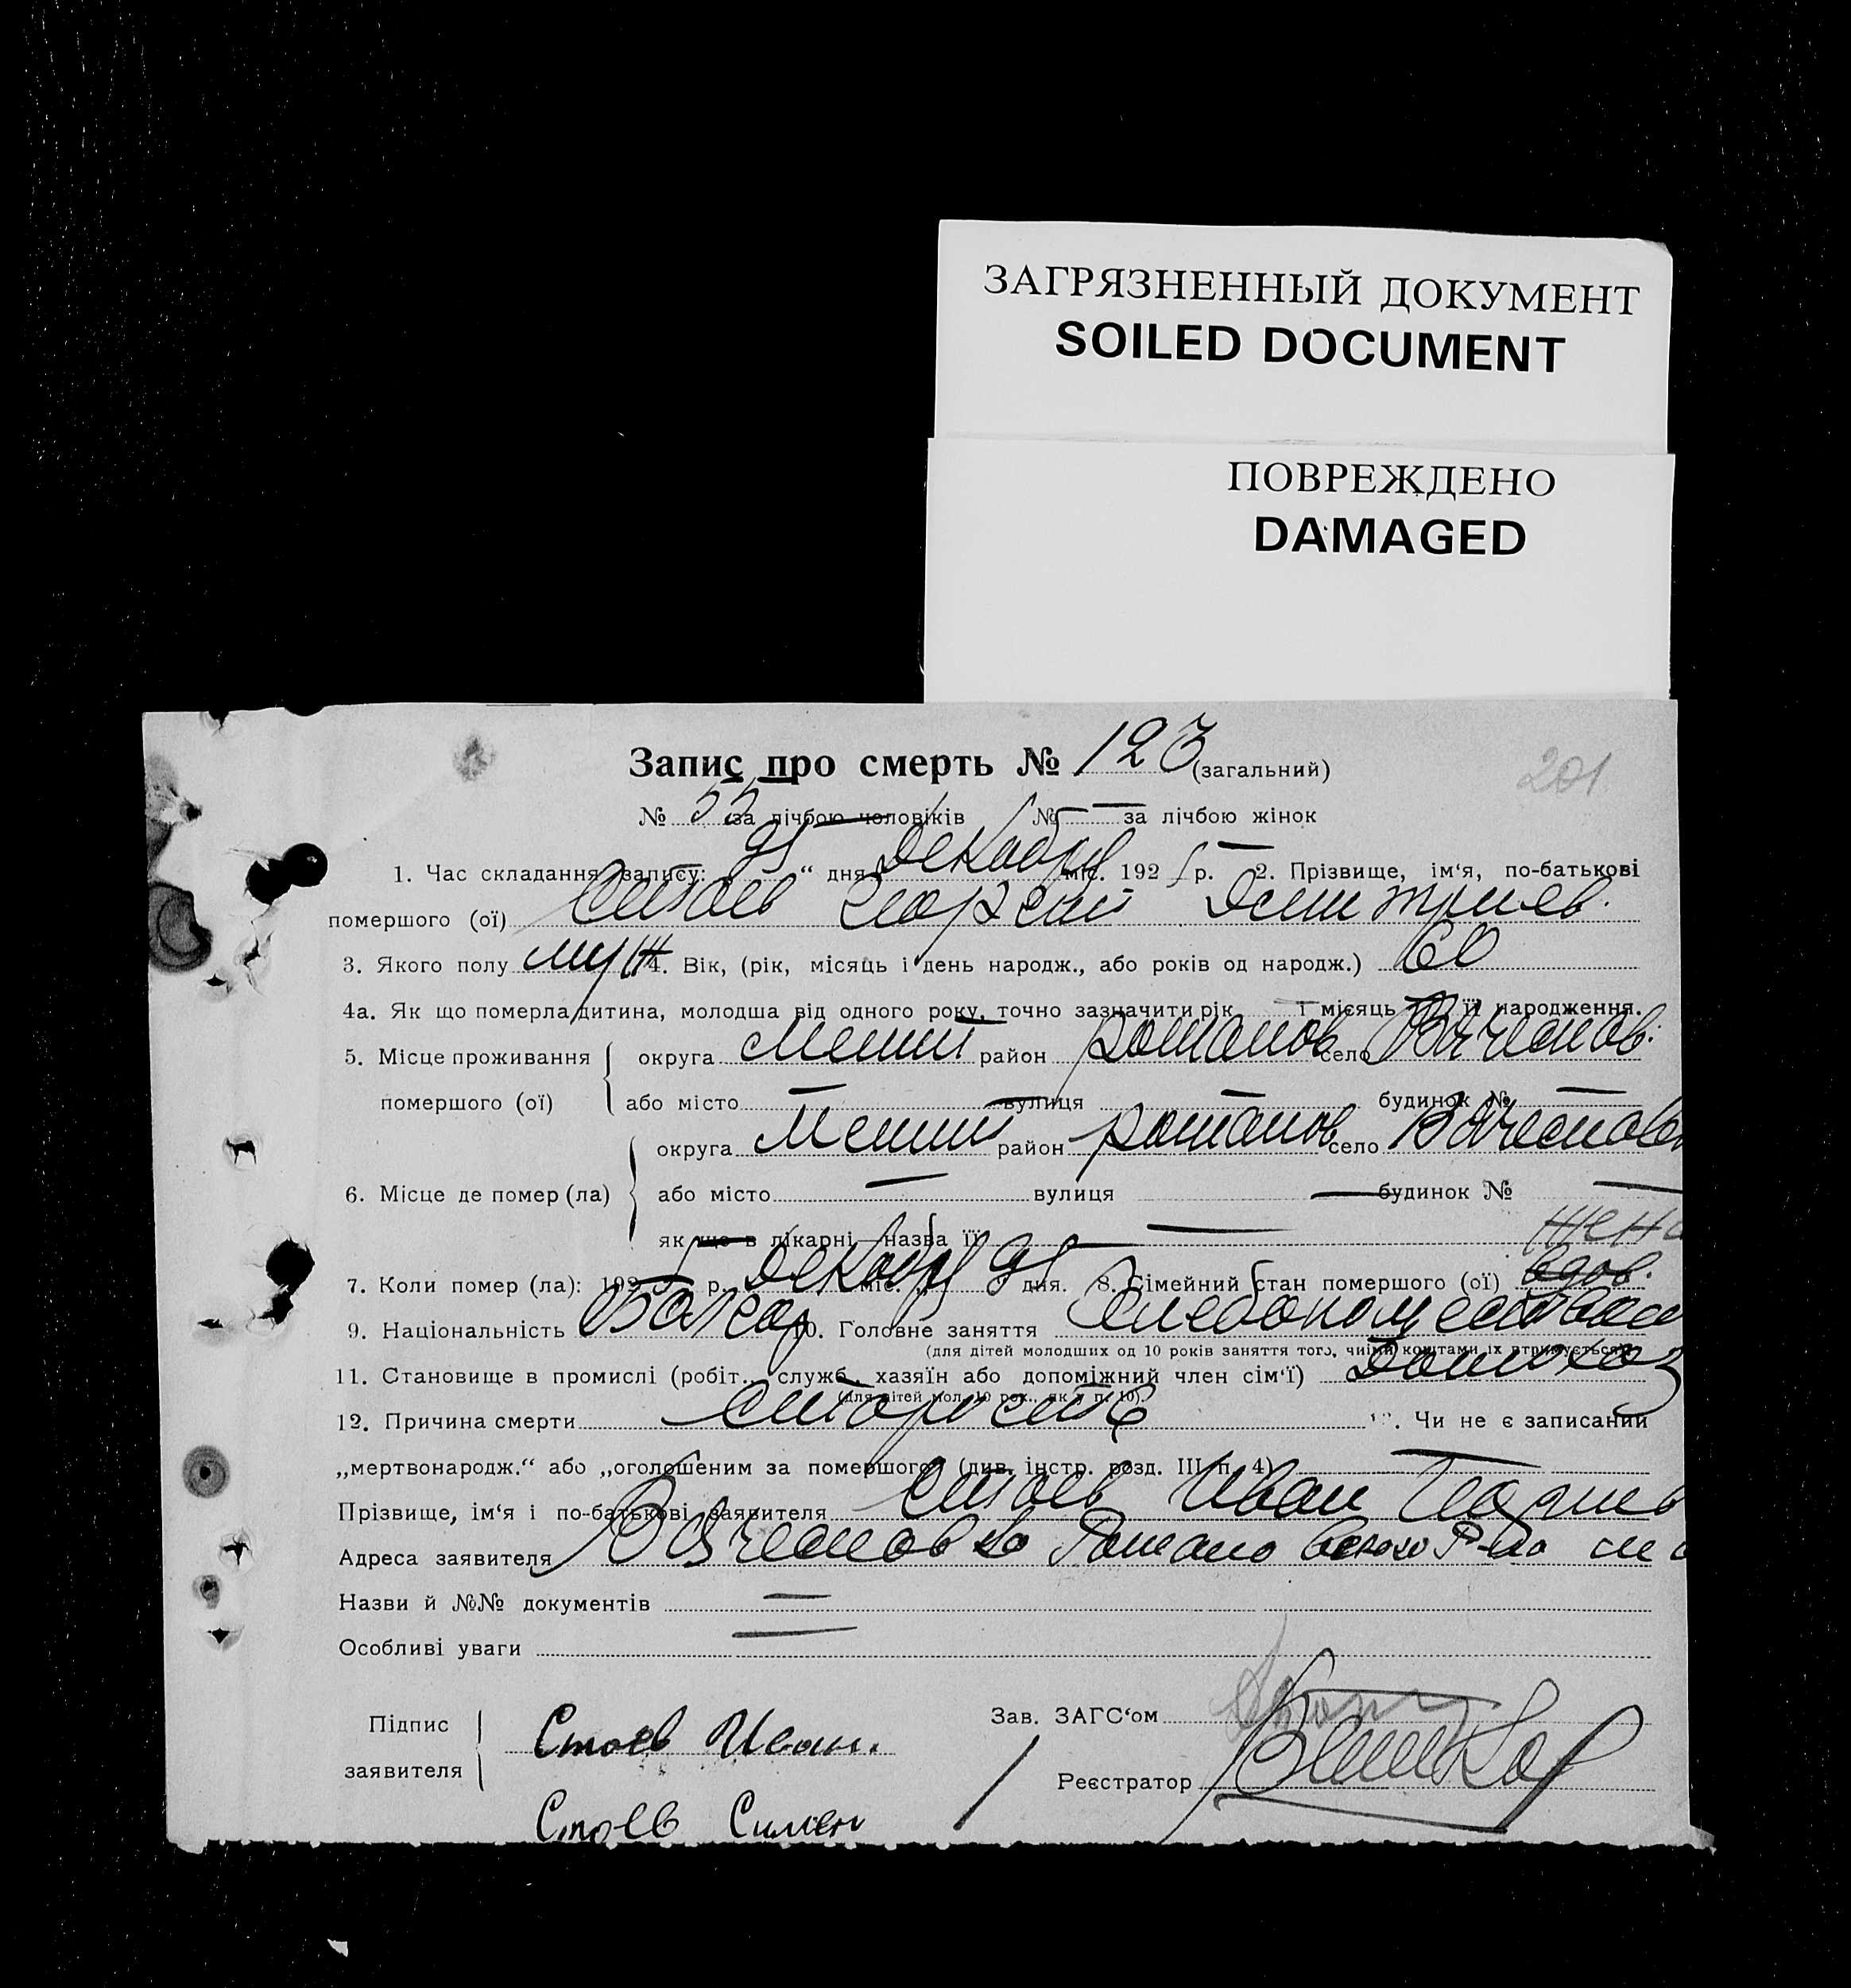 ЗАГРЯЗНЕННЫЙ ДОКУМЕНТ
SOILED DOCUMENT
ПОВРЕЖДЕНО
DAMAGED
Запис про смерть № 123 (загальний)
201
№ 55 за лічбою чоловіків № — за лічбою жінок
1. Час складання запису: „ “ дня Декабря міс. 192 р. 2. Прізвище, ім‘я, по-батькові
помершого (ої) Стоев Георгий Дмитриев.
3. Якого полу муж 4. Вік, (рік, місяць і день народж., або років од народж.) 60
4а. Як що померла дитина, молодша від одного року, точно зазначити рік — і місяць — її народження.
5. Місце проживання округа Мелит район Романов село Вячеслов.
помершого (ої) або місто — вулиця — будинок № —
округа Мелит район Романов село
6. Місце де помер (ла) або місто — вулиця — будинок № —
як що в лікарні—назва її —
жена
7. Коли помер (ла): 192 р. Декабря міс. „ дня. 8. Сімейний стан помершого (ої) вдов.
9. Національність Болгар 10. Головне заняття
(для дітей молодших од 10 років заняття того, чиїми коштами їх втримується)
11. Становище в промислі (робіт., служб., хазяїн або допоміжний член сім‘ї) Домохоз
(для дітей мол. 10 рок., як у п. 10).
12. Причина смерти старость 13. Чи не є записаний
„мертвонародж.“ або „оголошеним за помершого“ (див. інстр. розд. III п. 4) —
Прізвище, ім‘я і по-батькові заявителя Стоев Иван
Адреса заявителя Романовского р-на
Назви й №№ документів —
Особливі уваги —
Підпис
заявителя
Стоев Иван.
Стоев Симен
Зав. ЗАГС‘ом
Реєстратор